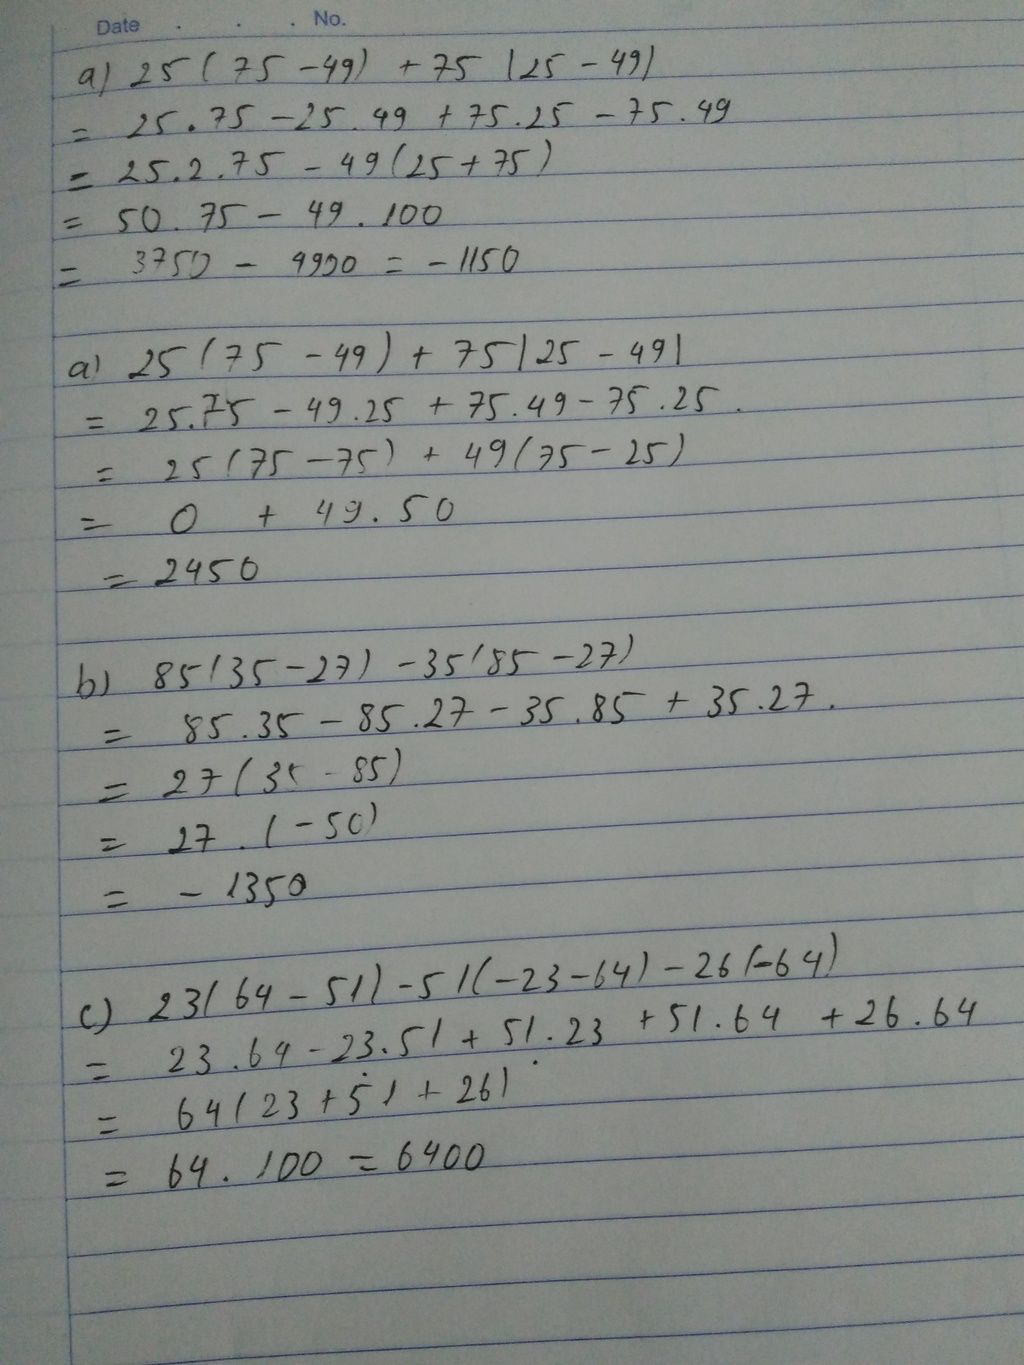 Date . . . No.
a) 25(75-49) + 75|25-49|
= 25.75-25.49 + 75.25-75.49
= 25.2.75 - 49(25+75)
= 50.75 - 49.100
= 3750 - 4900 = -1150
a) 25(75-49) + 75|25-49|
= 25.75 - 49.25 + 75.49 - 75.25.
= 25(75-75) + 49(75-25)
= 0 + 49.50
= 2450
b) 85(35-27) - 35(85-27)
= 85.35 - 85.27 - 35.85 + 35.27.
= 27(35-85)
= 27.(-50)
= -1350
c) 23(64-51) - 51(-23-64) - 26(-64)
= 23.64 - 23.51 + 51.23 + 51.64 + 26.64
= 64(23+51+26)
= 64.100 = 6400